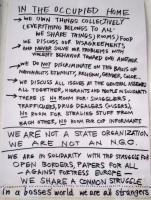 IN THE OCCUPIED HOME
→ WE OWN THINGS COLLECTIVELY
(EVERYTHING BELONGS TO ALL.
WE SHARE THINGS/ROOMS/FOOD
→ WE DISCUSS OUR DISAGREEMENTS
AND NEVER SOLVE OUR PROBLEMS WITH
VIOLENT BEHAVIOR TOWARD ONE ANOTHER
→ WE DO NOT DISCRIMINATE ON THE BASIS OF
NATIONALITY, ETHNICITY, RELIGION, GENDER, COLOR...
→ WE DISCUSS ALL ISSUES AT THE GENERAL ASSEMBLY
ALL TOGETHER, MIGRANTS AND PEOPLE IN SOLIDARITY
→ THERE IS NO ROOM FOR: SMUGGLERS,
TRAFFICKERS, DRUG DEALERS (USERS),
NO ROOM FOR STEALING STUFF FROM
EACH OTHER, NO ROOM FOR COP INFORMANTS
WE ARE NOT A STATE ORGANIZATION
WE ARE NOT AN N.G.O.
WE ARE IN SOLIDARITY WITH THE STRUGGLE FOR
OPEN BORDERS, PAPERS FOR ALL
AGAINST FORTRESS EUROPE
WE SHARE A COMMON STRUGGLE
in a bosses world we are all strangers